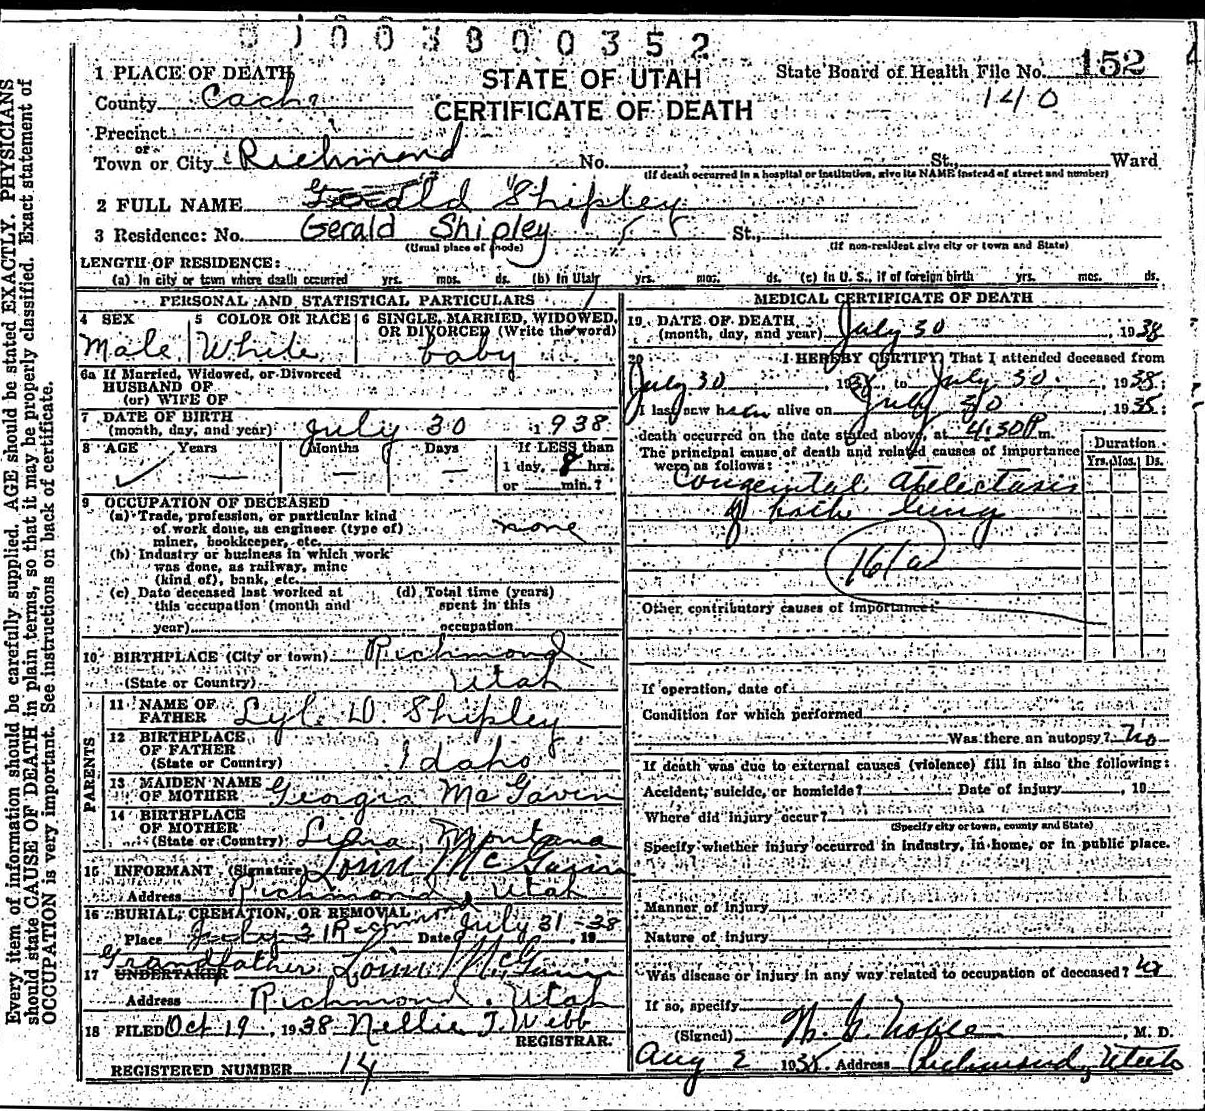 003800352
1 PLACE OF DEATH
STATE OF UTAH
State Board of Health File No. 152
County Cache
CERTIFICATE OF DEATH
140
Precinct
or
Town or City Richmond No. , St., Ward
(If death occurred in a hospital or institution, give its NAME instead of street and number)
2 FULL NAME Gerald Shipley
3 Residence: No. Gerald Shipley St.,
(Usual place of abode) (If non-resident give city or town and State)
LENGTH OF RESIDENCE:
(a) In city or town where death occurred yrs. mos. ds. (b) In Utah yrs. mos. ds. (c) In U. S., if of foreign birth yrs. mos. ds.
PERSONAL AND STATISTICAL PARTICULARS
4 SEX 5 COLOR OR RACE 6 SINGLE, MARRIED, WIDOWED,
OR DIVORCED (Write the word)
Male White baby
6a If Married, Widowed, or Divorced
HUSBAND OF
(or) WIFE OF
7 DATE OF BIRTH
(month, day, and year) July 30 1938
8 AGE Years Months Days If LESS than
1 day, 8 hrs.
or min.?
9 OCCUPATION OF DECEASED
(a) Trade, profession, or particular kind
of work done, as engineer (type of)
miner, bookkeeper, etc. none
(b) Industry or business in which work
was done, as railway, mine
(kind of), bank, etc.
(c) Date deceased last worked at
this occupation (month and
year)
(d) Total time (years)
spent in this
occupation
10 BIRTHPLACE (City or town) Richmond
(State or Country) Utah
PARENTS
11 NAME OF
FATHER Lyle D. Shipley
12 BIRTHPLACE
OF FATHER
(State or Country) Idaho
13 MAIDEN NAME
OF MOTHER Georgia McGavin
14 BIRTHPLACE
OF MOTHER
(State or Country) Lima, Montana
15 INFORMANT (Signature) McGavin
Address Richmond, Utah
16 BURIAL, CREMATION, OR REMOVAL
Place July 31 Richmond Date July 31-38, 19
Grandfather McGavin
17 UNDERTAKER
Address Richmond, Utah
18 FILED Oct 19, 1938 Nellie T. Webb
REGISTRAR.
REGISTERED NUMBER 14
MEDICAL CERTIFICATE OF DEATH
19 DATE OF DEATH
(month, day, and year) July 30 1938
20 I HEREBY CERTIFY, That I attended deceased from
July 30, 1938, to July 30, 1938;
I last saw him alive on July 30, 1938;
death occurred on the date stated above, at 4:30 P m.
The principal cause of death and related causes of importance
were as follows:
Duration
Yrs. Mos. Ds.
Congenital Atelectasis
of both lung
161a
Other contributory causes of importance:
If operation, date of
Condition for which performed
Was there an autopsy? No
If death was due to external causes (violence) fill in also the following:
Accident, suicide, or homicide? Date of injury , 19
Where did injury occur?
(Specify city or town, county and State)
Specify whether injury occurred in industry, in home, or in public place.
Manner of injury
Nature of injury
Was disease or injury in any way related to occupation of deceased? no
If so, specify
(Signed) , M. D.
Aug 2 1938. Address Richmond, Utah
Every item of information should be carefully supplied. AGE should be stated EXACTLY. PHYSICIANS
should state CAUSE OF DEATH in plain terms, so that it may be properly classified. Exact statement of
OCCUPATION is very important. See instructions on back of certificate.